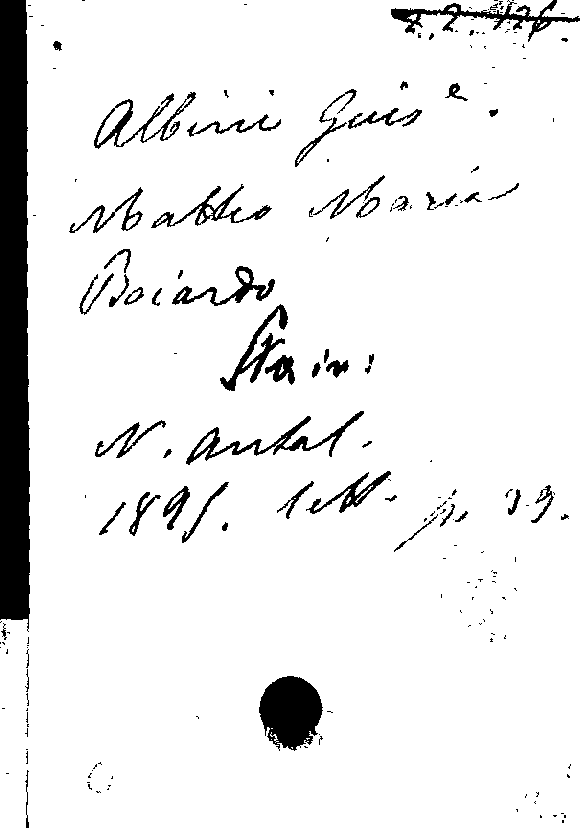 2.2.126.
Albini Guis e.
Matteo Maria
Boiardo
Sta in:
N. Antol.
1895. Sett. p. 39.